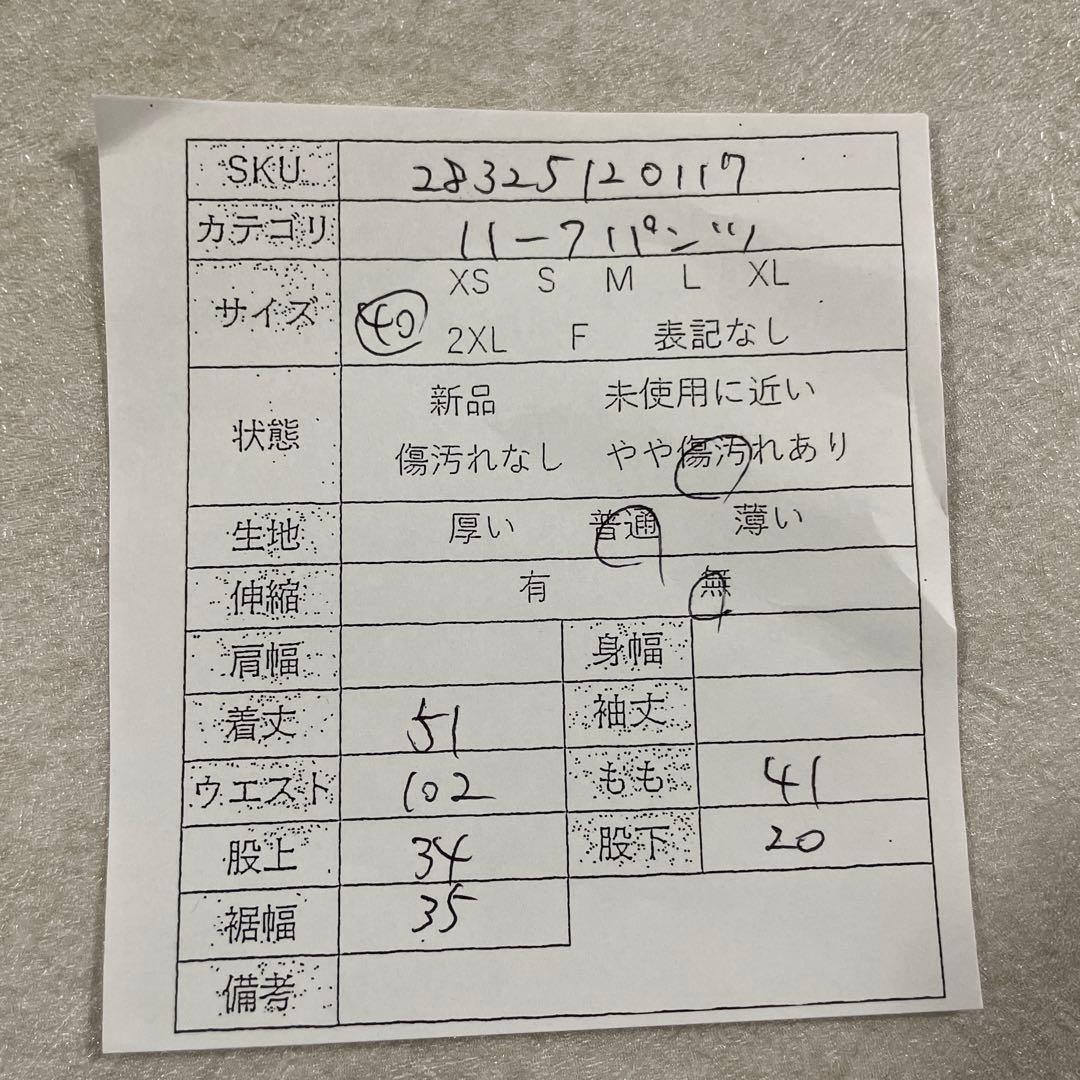 SKU 28325120117
カテゴリ ハーフパンツ
サイズ XS S M L XL
40 2XL F 表記なし
状態 新品 未使用に近い
傷汚れなし やや傷汚れあり
生地 厚い 普通 薄い
伸縮 有 無
肩幅 身幅
着丈 51 袖丈
ウエスト 102 もも 41
股上 34 股下 20
裾幅 35
備考